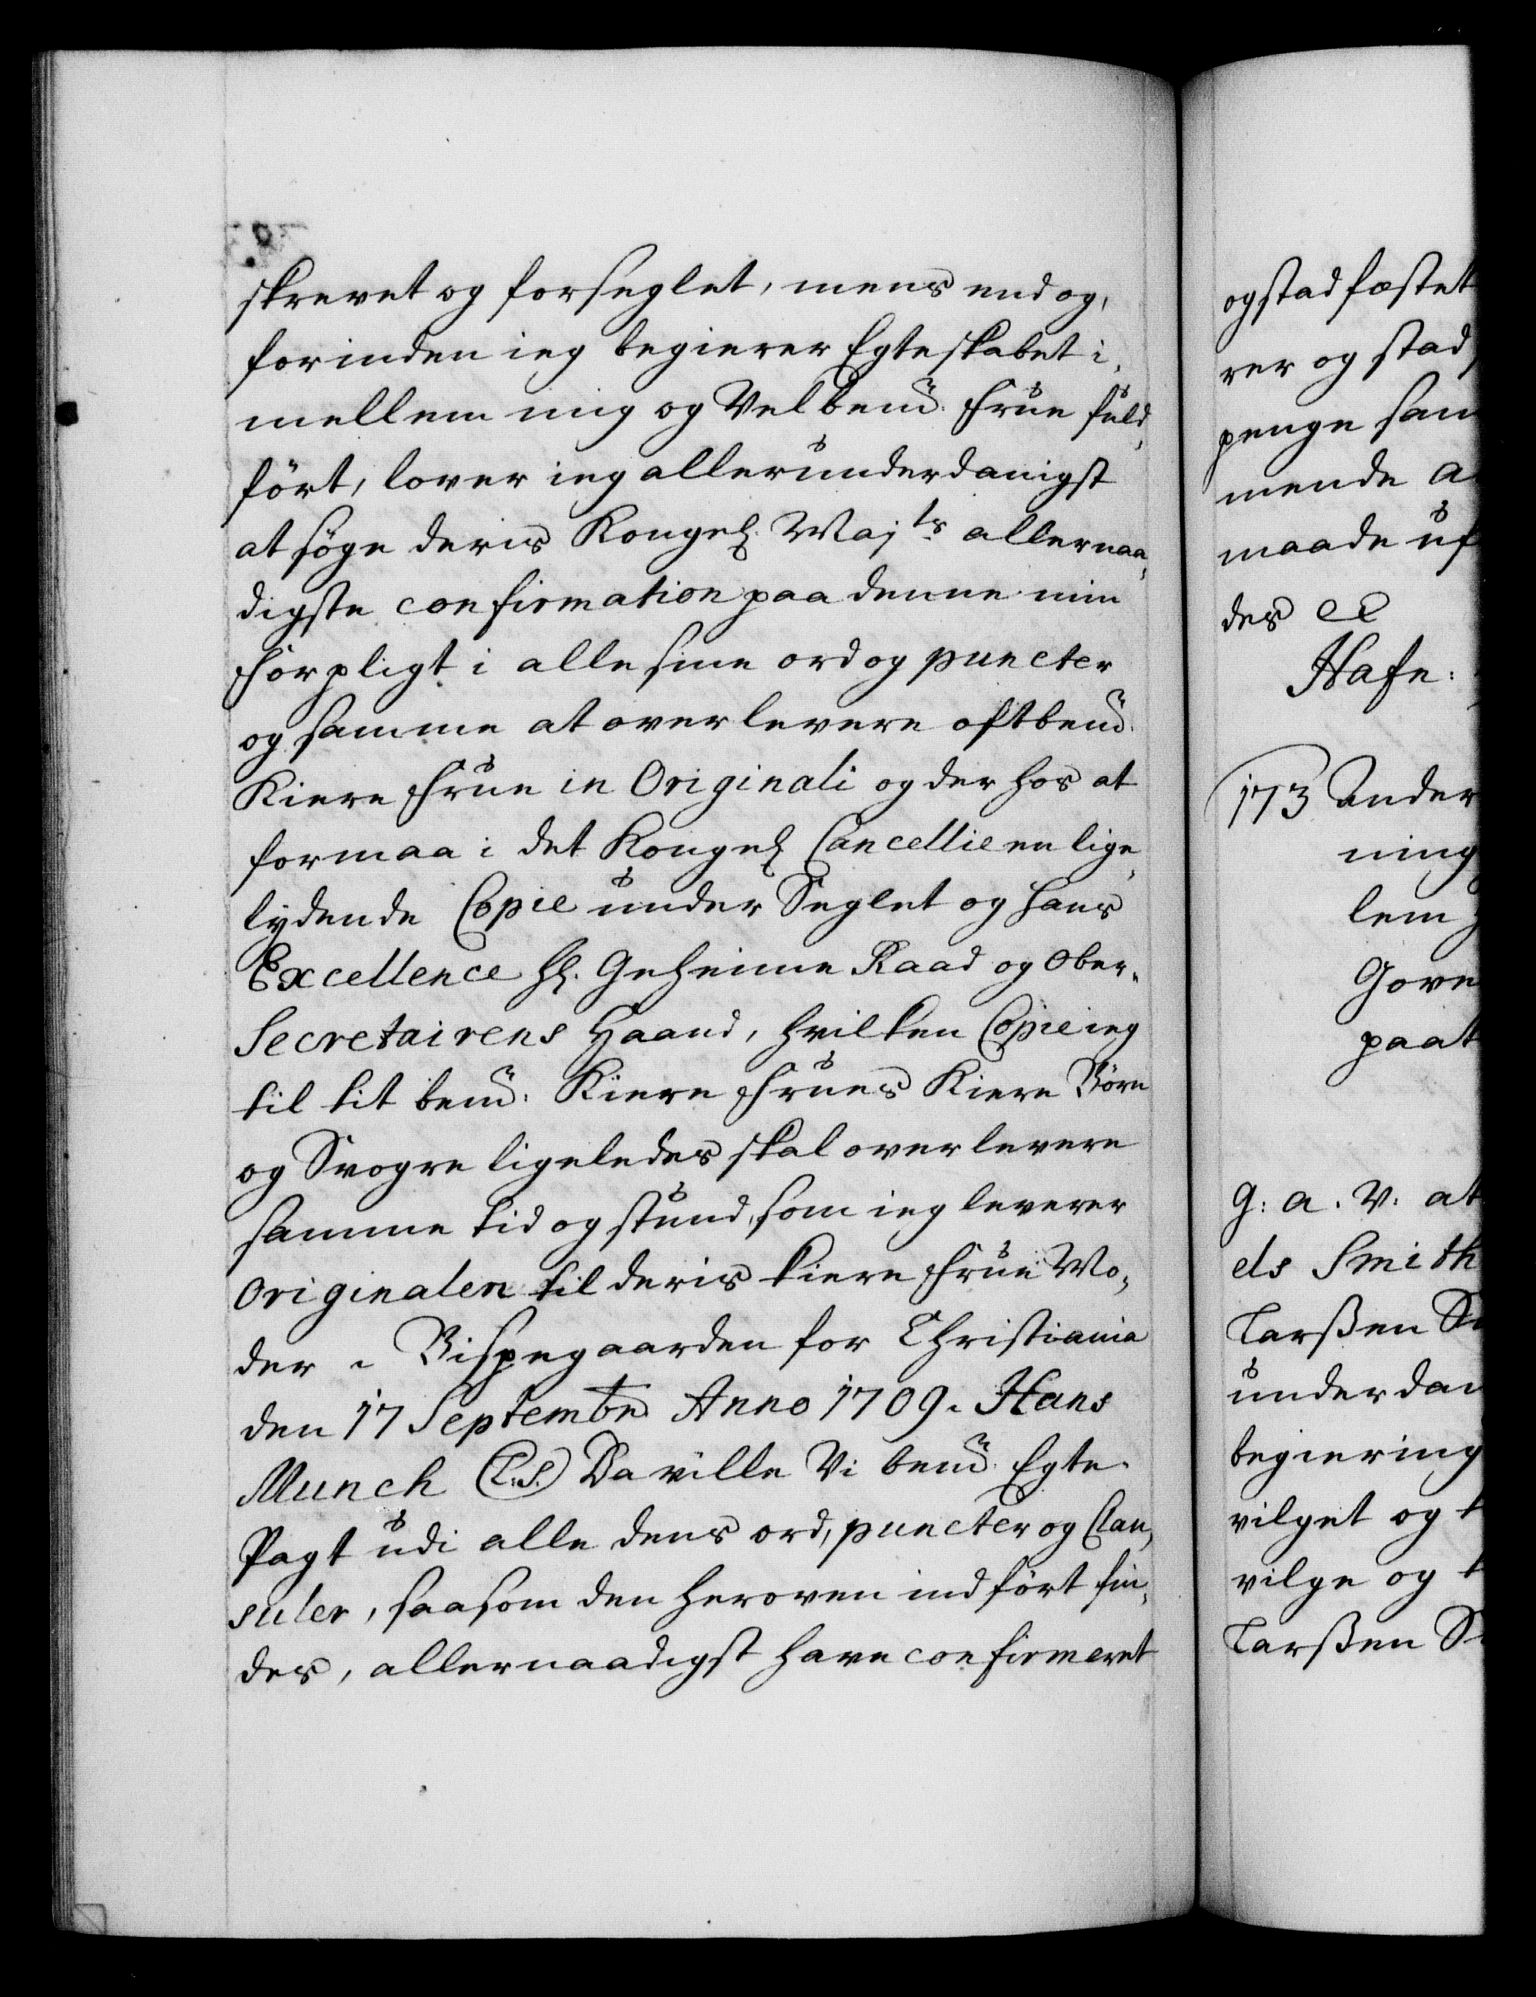 skrevet og forseglet, mens end og,
forinden ieg begierer Egteskabet i,
mellem mig og Velbem̃. Frue fuld,
fört, lover ieg allerunderdanigst
at söge deris Kongel. Majts allernaa,
digste confirmation paa denne min
forpligt i alle sine ord og puncter
og samme at overlevere oftbem̃.
Kiere Frue in Originali og der hos at
formaa i det Kongel Cancellie en lige,
lydende Copie under Seglet og hans
Excellence Hl. Geheime Raad og Ober-
Secretairens Haand, hvilken Copie ieg
til tit bem̃. Kiere Frues Kiere Börn
og Svogre ligeledes skal overlevere
samme tid og stund, som ieg leverer
Originalen til deris kiere Frue Mo,
der i Bispegaarden for Christiania
den 17 Septembr Anno 1709. Hans
Munch (L.S.) Da ville Vi bem̃. Egte-
Pagt udi alle dens ord, puncter og Clau,
suler, saasom den heroven indfört fin,
des, allernaadigst have confirmeret
og stadfæstet
rer og stad,
penge sam
mende a
maade uf
des
Hafn:
173 Under
ning
lem
Gove
paat
G: a. V: at
els Smith
Larßen S
underdan
begiering
vilget og t
vilge og t
Larßen S